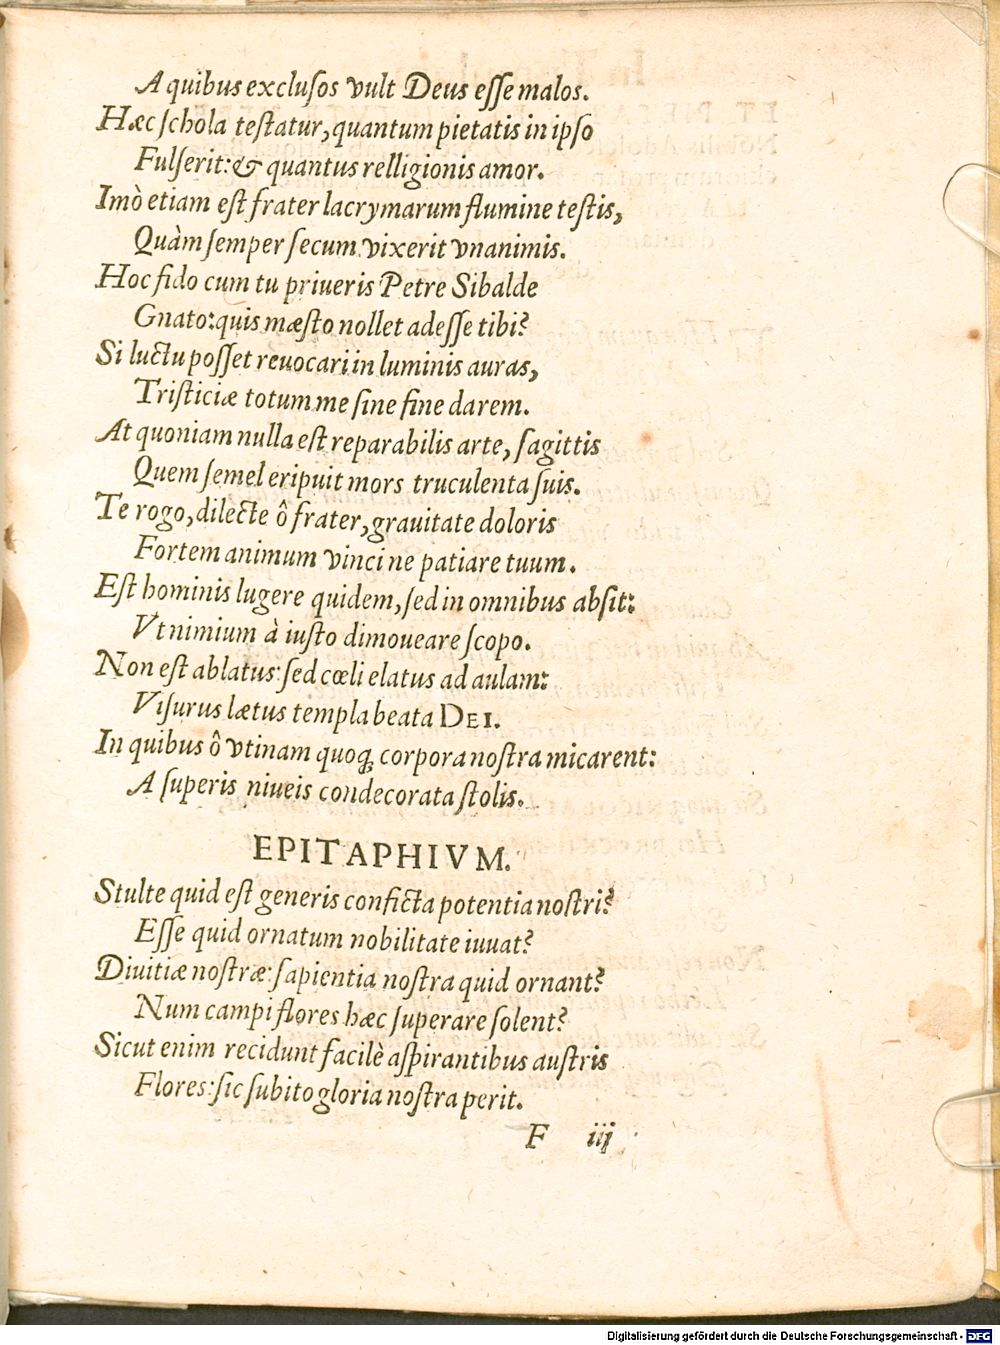 A quibus exclusos vult Deus esse malos.
Hæc schola testatur, quantum pietatis in ipso
Fulserit: & quantus relligionis amor.
Imò etiam est frater lacrymarum flumine testis,
Quàm semper secum vixerit vnanimis.
Hoc fido cum tu priueris Petre Sibalde
Gnato: quis mæsto nollet adesse tibi?
Si luctu posset reuocari in luminis auras,
Tristiciæ totum me sine fine darem.
At quoniam nulla est reparabilis arte, sagittis
Quem semel eripuit mors truculenta suis.
Te rogo, dilecte ô frater, grauitate doloris
Fortem animum vinci ne patiare tuum.
Est hominis lugere quidem, sed in omnibus absit:
Vt nimium à iusto dimoueare scopo.
Non est ablatus: sed cœli elatus ad aulam:
Visurus lætus templa beata DEI.
In quibus ô vtinam quoq; corpora nostra micarent:
A superis niueis condecorata stolis.
EPITAPHIVM.
Stulte quid est generis conficta potentia nostri?
Esse quid ornatum nobilitate iuuat?
Diuitiæ nostræ: sapientia nostra quid ornant?
Num campi flores hæc superare solent?
Sicut enim recidunt facilè aspirantibus austris
Flores: sic subito gloria nostra perit.
F iij
Digitalisierung gefördert durch die Deutsche Forschungsgemeinschaft - DFG